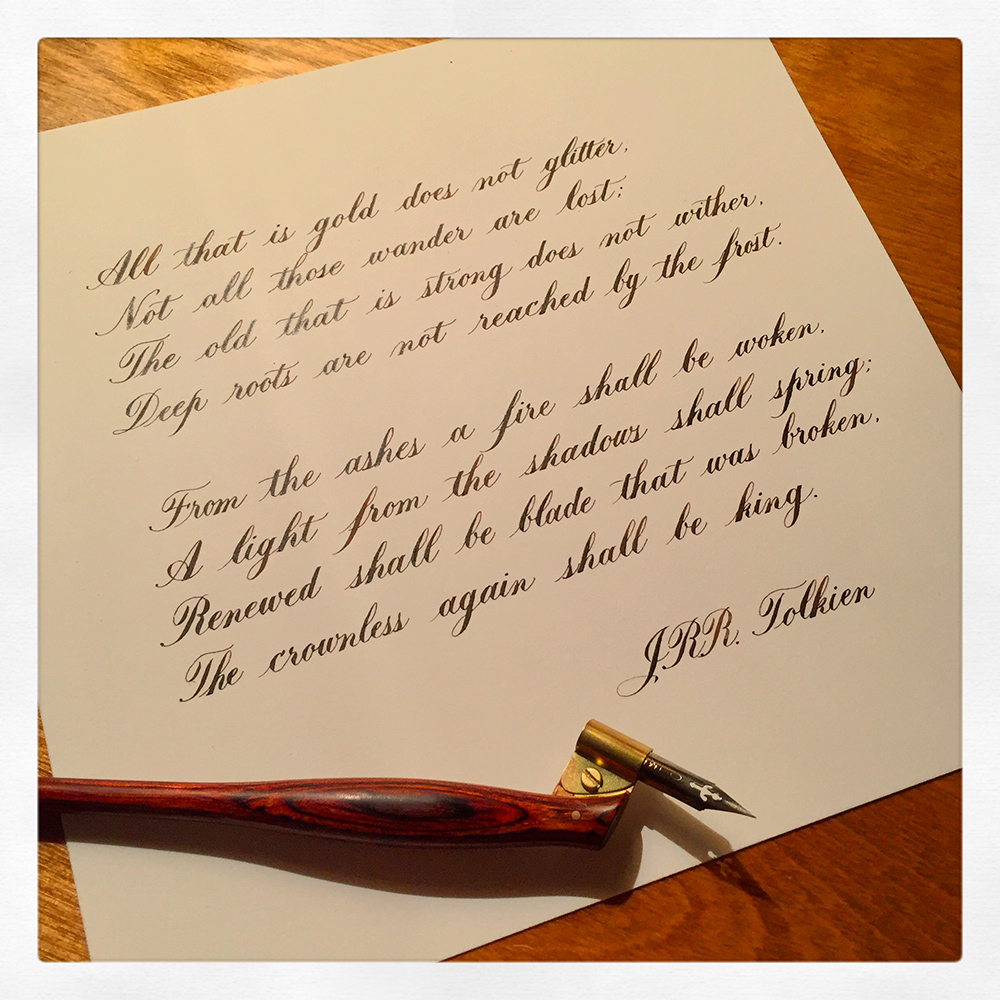 All that is gold does not glitter,
Not all those wander are lost;
The old that is strong does not wither,
Deep roots are not reached by the frost.
From the ashes a fire shall be woken,
A light from the shadows shall spring;
Renewed shall be blade that was broken,
The crownless again shall be king.
J.R.R. Tolkien